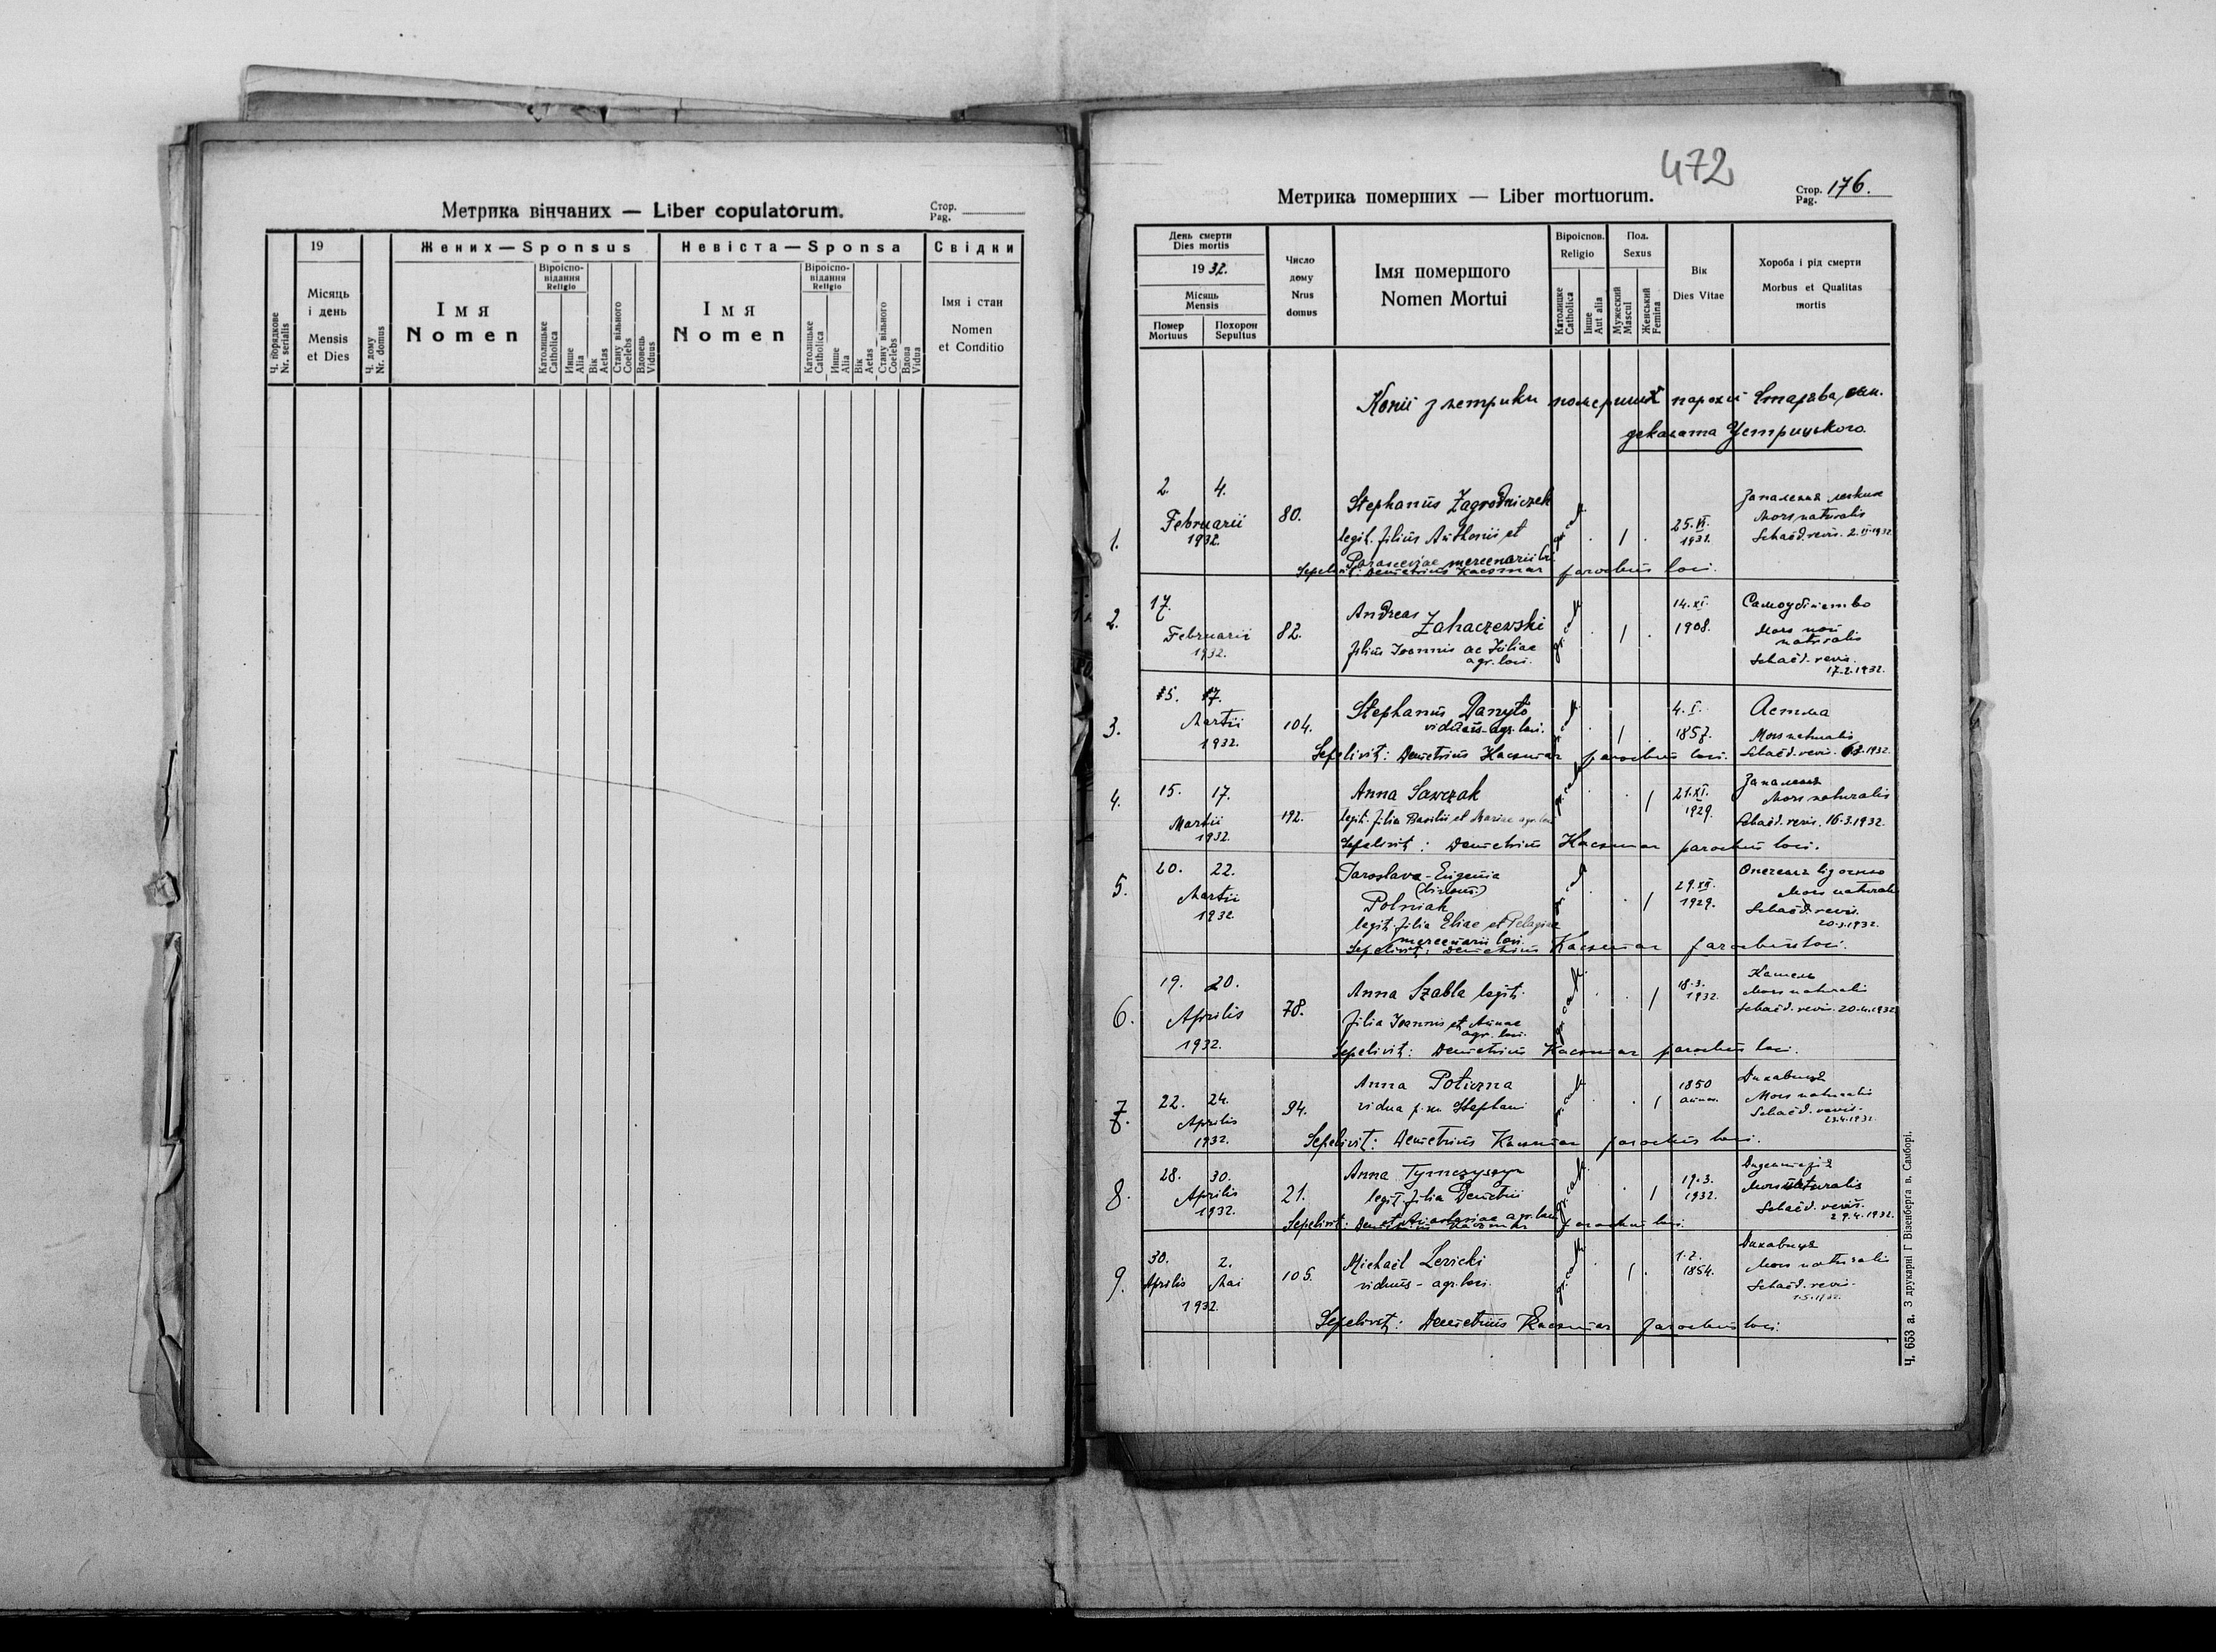 Метрика вінчаних — Liber copulatorum.
Стор.
Pag.
Ч. порядкове
Nr. serialis
19
Місяць
і день
Mensis
et Dies
Ч. дому
Nr. domus
Жених — Sponsus
Імя
Nomen
Віроіспо-
відання
Religio
Католицьке
Catholica
Инше
Alia
Вік
Aetas
Стану вільного
Coelebs
Вдовець
Viduus
Невіста — Sponsa
Імя
Nomen
Віроіспо-
відання
Religio
Католицьке
Catholica
Инше
Alia
Вік
Aetas
Стану вільного
Coelebs
Вдова
Vidua
Свідки
Імя і стан
Nomen
et Conditio
472
Метрика померших — Liber mortuorum.
Стор.
Pag. 176.
День смерти
Dies mortis
1932.
Місяць
Mensis
Помер
Mortuus
Похорон
Sepultus
Число
дому
Nrus
domus
Імя помершого
Nomen Mortui
Віроіспов.
Religio
Католицке
Catholica
Інше
Aut alia
Пол.
Sexus
Мужеский
Mascul
Женський
Femina
Вік
Dies Vitae
Хороба і рід смерти
Morbus et Qualitas
mortis
Копії з метрики померших парохії Стар
деканата Устрицького.
1.
2. 4.
Februarii
1932.
80.
Stephanus Zagrodniczek
legit. filius Anthonii et
Parasceviae mercenarii loci
gr. cath.
1
25. VI.
1931.
Запалення легких
Mors naturalis
Schaed. revis. 2.II.1932
Sepelivit: Demetrius Kacsmar parochus loci.
2.
17.
Februarii
1932.
82.
Andreas
Zahaczewski
filius Joannis ac Juliae
agr. loci.
gr. cath.
1
14. XI.
1908.
Самоубійство
Mors non
naturalis
Schaed. revis.
17.2.1932.
3.
15. 17.
Martii
1932.
104.
Stephanus Danyło
viduus agr. loci.
gr. cath.
1
4. I.
1857.
Астма
Mors naturalis
Schaed. revis. 1932.
Sepelivit: Demetrius Kacsmar parochus loci.
4.
15. 17.
Martii
1932.
192.
Anna Sawczak
legit. filia Basilii et Mariae agr. loci
gr. cath.
1
21. XI.
1929.
Запалення
Mors naturalis
Schaed. revis. 16.3.1932.
Sepelivit: Demetrius Kacsmar parochus loci.
5.
20. 22.
Martii
1932
Jaroslava-Eugenia
(binom.)
Polniak
legit. filia Eliae et Pelagiae
mercenarii loci.
gr. cath.
1
29. XII.
1929.
Опечення
Mors naturalis
Schaed. revis.
20.3.1932.
Sepelivit: Demetrius Kacsmar parochus loci.
6.
19. 20.
Aprilis
1932.
78.
Anna Szabla legit.
filia Joannis et Annae
agr. loci.
gr. cath.
1
18.3.
1932.
Кашель
Mors naturalis
Schaed. revis. 20.4.1932
Sepelivit: Demetrius Kacsmar parochus loci.
7.
22. 24.
Aprilis
1932.
94.
Anna Poticzna
vidua p. m. Stephani
gr. cath.
1
1850
annor.
Дихавиця
Mors naturalis
Schaed. revis.
23.4.1932.
Sepelivit: Demetrius Kacsmar parochus loci.
8.
28. 30.
Aprilis
1932.
21.
Anna Tymczyszyn
legit. filia Demetrii
et Anastasiae agr. loci
gr. cath.
1
19.3.
1932.
Дизентерія
Mors naturalis
Schaed. revis.
29.4.1932.
Sepelivit: Demetrius Kacsmar parochus loci.
9.
30. 2.
Aprilis Mai
1932.
105.
Michael Lewicki
viduus - agr. loci.
gr. cath.
1
1.2.
1854.
Дихавиця
Mors naturalis
Schaed. revis.
1.5.1932.
Sepelivit: Demetrius Kacsmar parochus loci.
Ч. 653 а. З друкарні Г Візенберга в. Самборі.